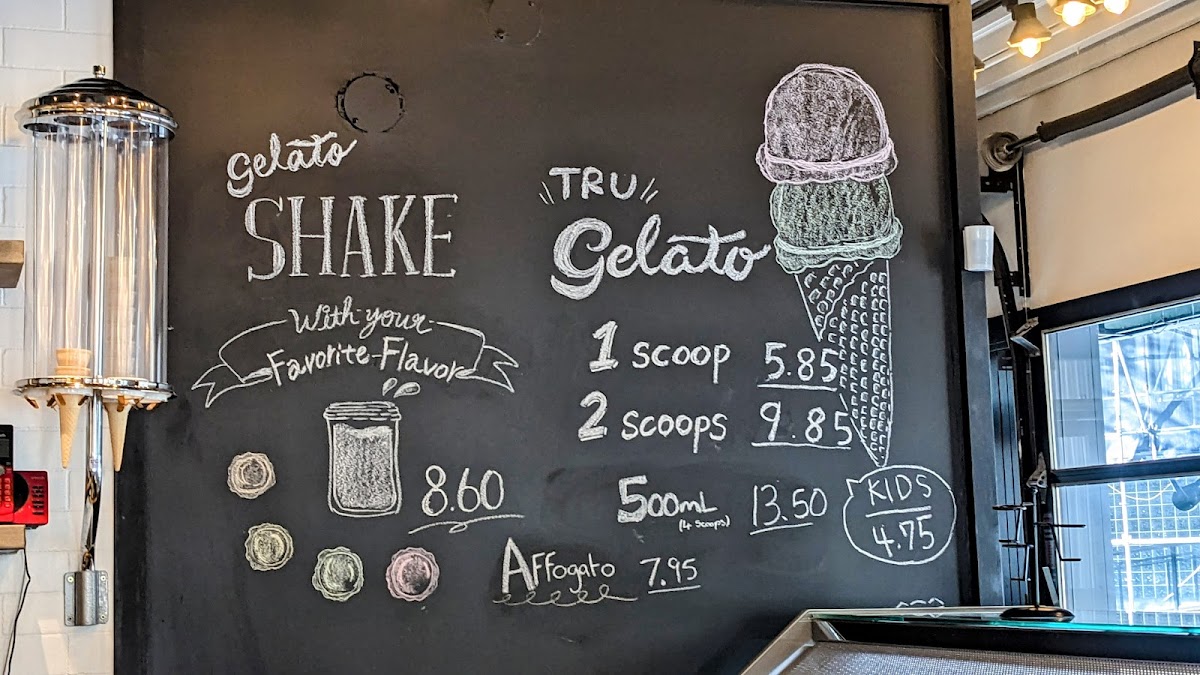 Gelato
SHAKE
With your
Favorite Flavor
8.60
TRU
Gelato
1 SCOOP 5.85
2 SCOOPS 9.85
500mL 13.50
(4 Scoops)
KIDS
4.75
AFFogato 7.95